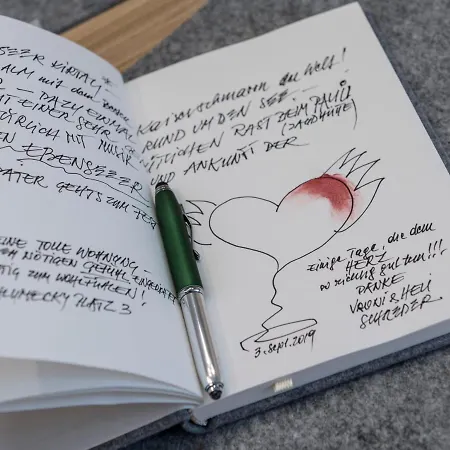 SEEER KIRTAG *
ALM mit dem
– DAZU EINMAL
T EINER SEHR
TÜRLICH MIT MUSIK
EN EBENSEEER
ATER GEHTS ZUM FEST
EINE TOLLE WOHNUNG –
EM NÖTIGEN GEFÜHL EINGERICHTET
TIG ZUM WOHLFÜHLEN!
LUMECKY PLATZ 3
Kaiserschmarrn der Welt!
RUND UM DEN SEE –
TLICHEN RAST BEIM PAULI
(JAGDHÜTTE)
UND ANKUNFT DER
einige Tage, die dem
HERZ
so richtig gut tun!!!
DANKE
VRONI SHELI
SCHREDER
3. Sept. 2019